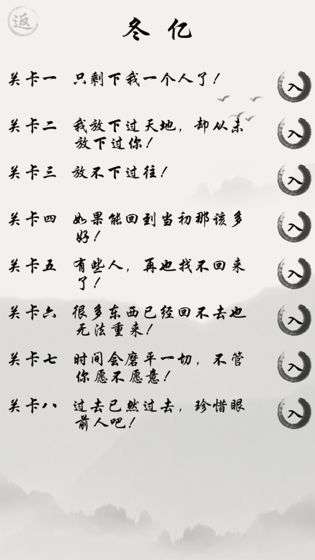 返
冬亿
关卡一 只剩下我一个人了！
入
关卡二 我放下过天地，却从未
放下过你！
入
关卡三 放不下过往！
入
关卡四 如果能回到当初那该多
好！
入
关卡五 有些人，再也找不回来
了！
入
关卡六 很多东西已经回不去也
无法重来！
入
关卡七 时间会磨平一切，不管
你愿不愿意！
入
关卡八 过去已然过去，珍惜眼
前人吧！
入